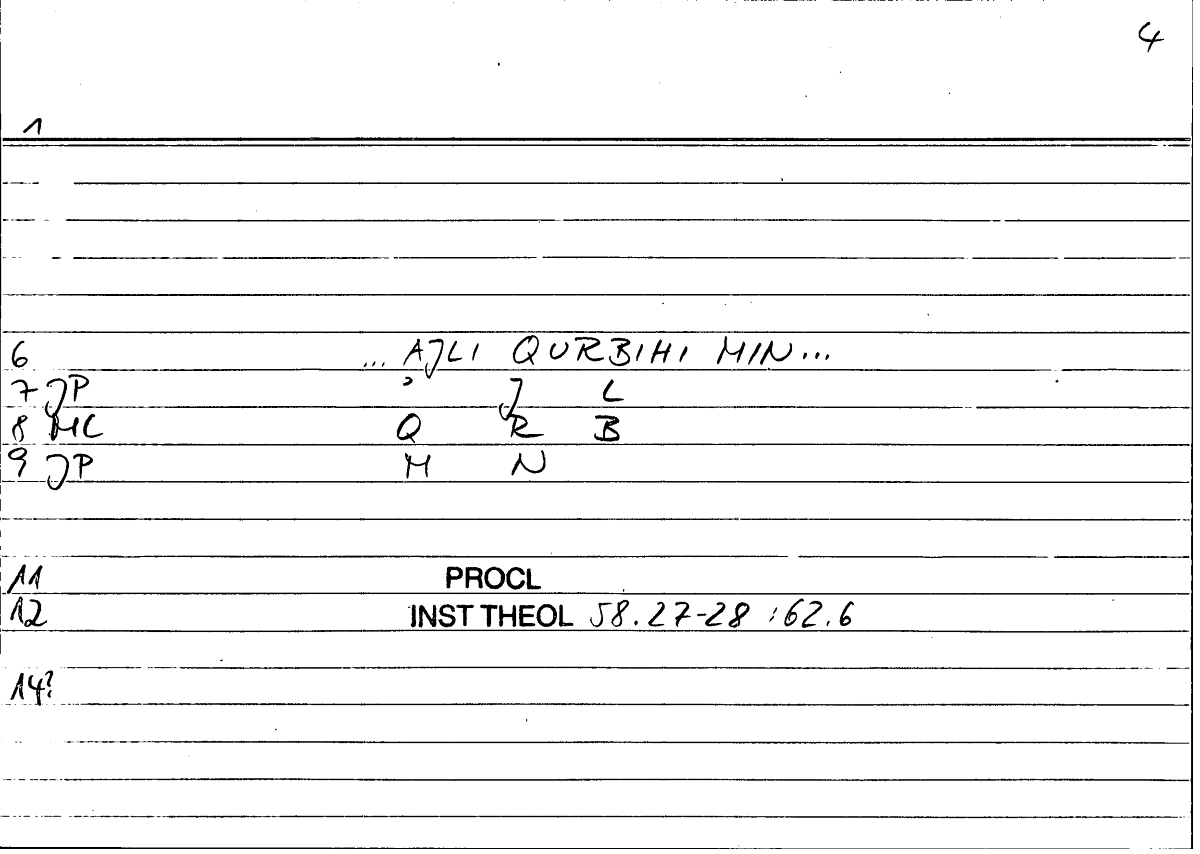 4
1
6 ... AJLI QURBIHI MIN...
7 JP ʾ J L
8 MC Q R B
9 JP M N
11 PROCL
12 INST THEOL 58.27-28 :62.6
14?